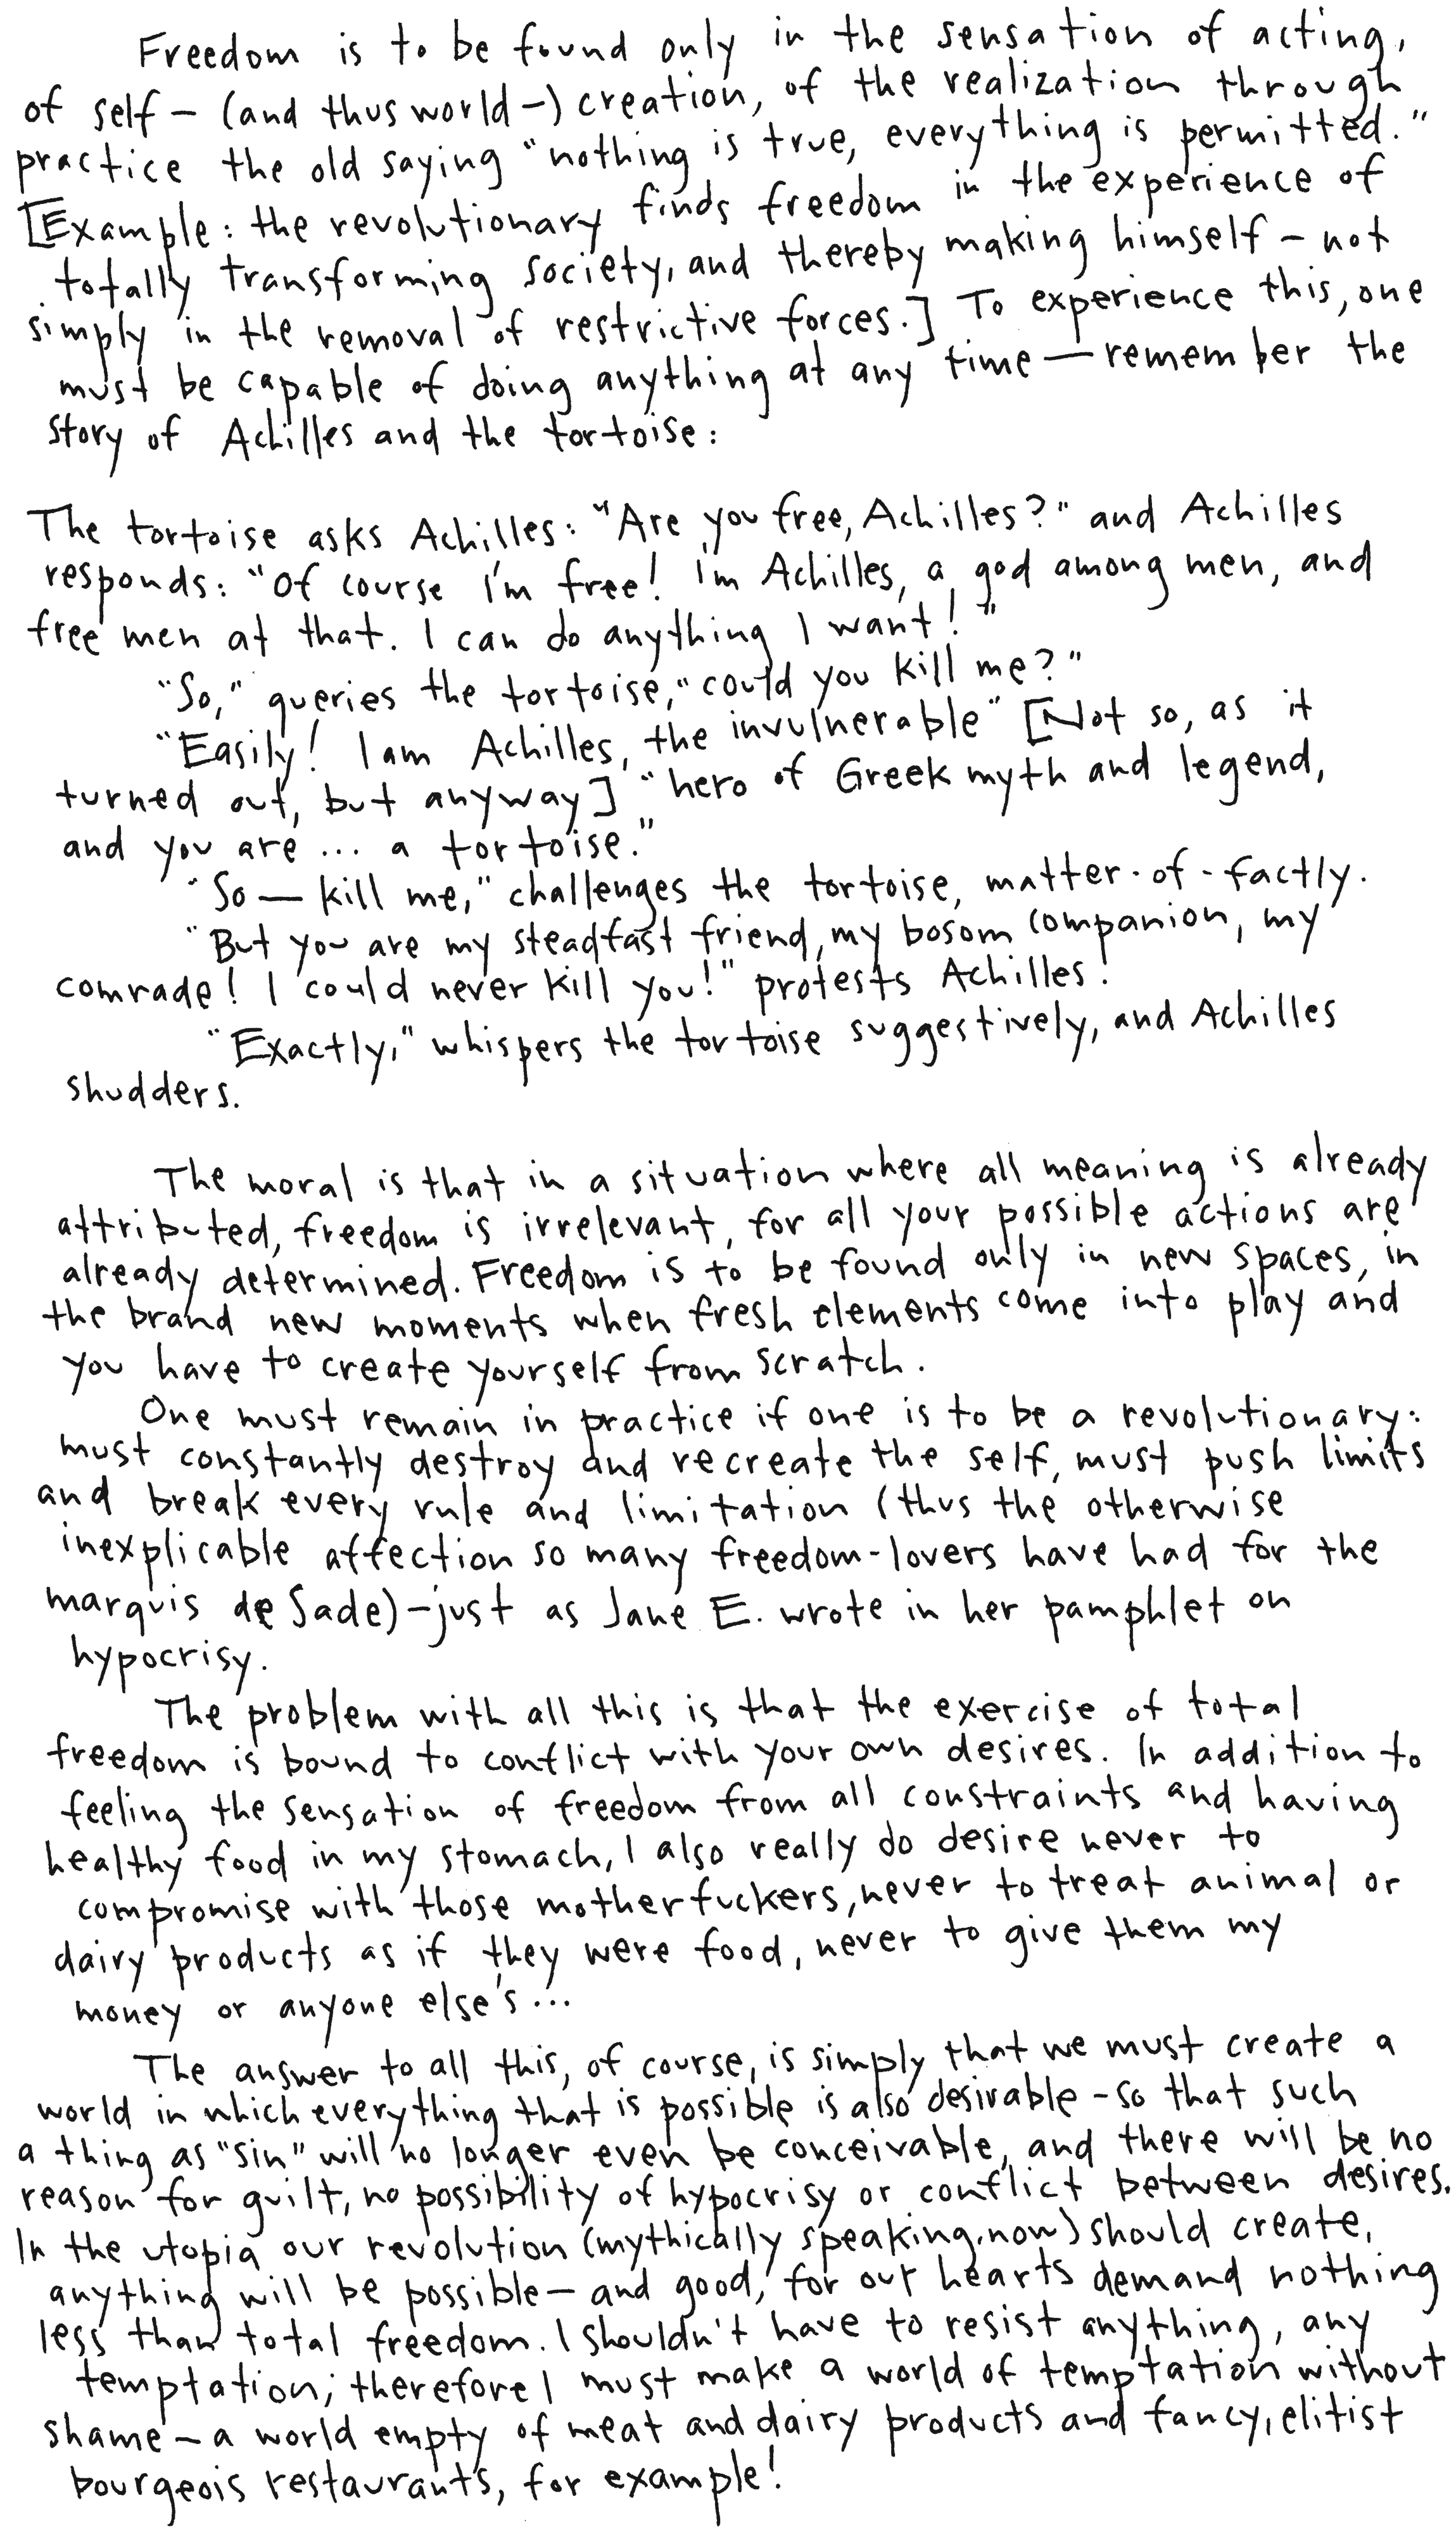 Freedom is to be found only in the sensation of acting,
of self- (and thus world-) creation, of the realization through
practice the old saying "nothing is true, everything is permitted."
[Example: the revolutionary finds freedom in the experience of
totally transforming society, and thereby making himself - not
simply in the removal of restrictive forces.] To experience this, one
must be capable of doing anything at any time — remember the
story of Achilles and the tortoise:
The tortoise asks Achilles: "Are you free, Achilles?" and Achilles
responds: "Of course I'm free! I'm Achilles, a god among men, and
free men at that. I can do anything I want!"
"So," queries the tortoise, "could you kill me?"
"Easily! I am Achilles, the invulnerable" [Not so, as it
turned out, but anyway] "hero of Greek myth and legend,
and you are ... a tortoise."
"So — kill me," challenges the tortoise, matter-of-factly.
"But you are my steadfast friend, my bosom companion, my
comrade! I could never kill you!" protests Achilles!
"Exactly," whispers the tortoise suggestively, and Achilles
shudders.
The moral is that in a situation where all meaning is already
attributed, freedom is irrelevant, for all your possible actions are
already determined. Freedom is to be found only in new spaces, in
the brand new moments when fresh elements come into play and
you have to create yourself from scratch.
One must remain in practice if one is to be a revolutionary:
must constantly destroy and recreate the self, must push limits
and break every rule and limitation (thus the otherwise
inexplicable affection so many freedom-lovers have had for the
marquis de Sade) - just as Jane E. wrote in her pamphlet on
hypocrisy.
The problem with all this is that the exercise of total
freedom is bound to conflict with your own desires. In addition to
feeling the sensation of freedom from all constraints and having
healthy food in my stomach, I also really do desire never to
compromise with those motherfuckers, never to treat animal or
dairy products as if they were food, never to give them my
money or anyone else's...
The answer to all this, of course, is simply that we must create a
world in which everything that is possible is also desirable - so that such
a thing as "sin" will no longer even be conceivable, and there will be no
reason for guilt, no possibility of hypocrisy or conflict between desires.
In the utopia our revolution (mythically speaking, now) should create,
anything will be possible - and good, for our hearts demand nothing
less than total freedom. I shouldn't have to resist anything, any
temptation; therefore I must make a world of temptation without
shame - a world empty of meat and dairy products and fancy, elitist
bourgeois restaurants, for example!